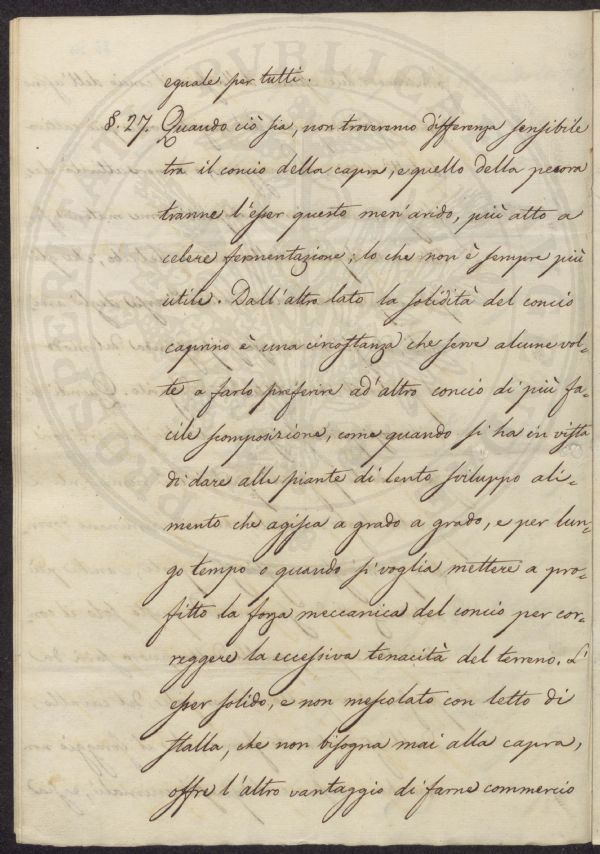 eguale per tutti.
§. 27. Quando ciò sia, non troveremo differenza sensibile
tra il concio della capra, e quello della pecora
tranne l'esser questo men' arido, più atto a
celere fermentazione; lo che non è sempre più
utile. Dall'altro lato la solidità del concio
caprino è una circostanza che serve alcune vol-
te a farlo preferire ad' altro concio di più fa-
cile scomposizione, come quando si ha in vista
di dare alle piante di lento sviluppo ali-
mento che agisca a grado a grado, e per lun-
go tempo o quando si voglia mettere a pro-
fitto la forza meccanica del concio per cor-
reggere la eccessiva tenacità del terreno. L'
esser solido, e non mescolato con letto di
stalla, che non bisogna mai alla capra,
offre l'altro vantaggio di farne commercio